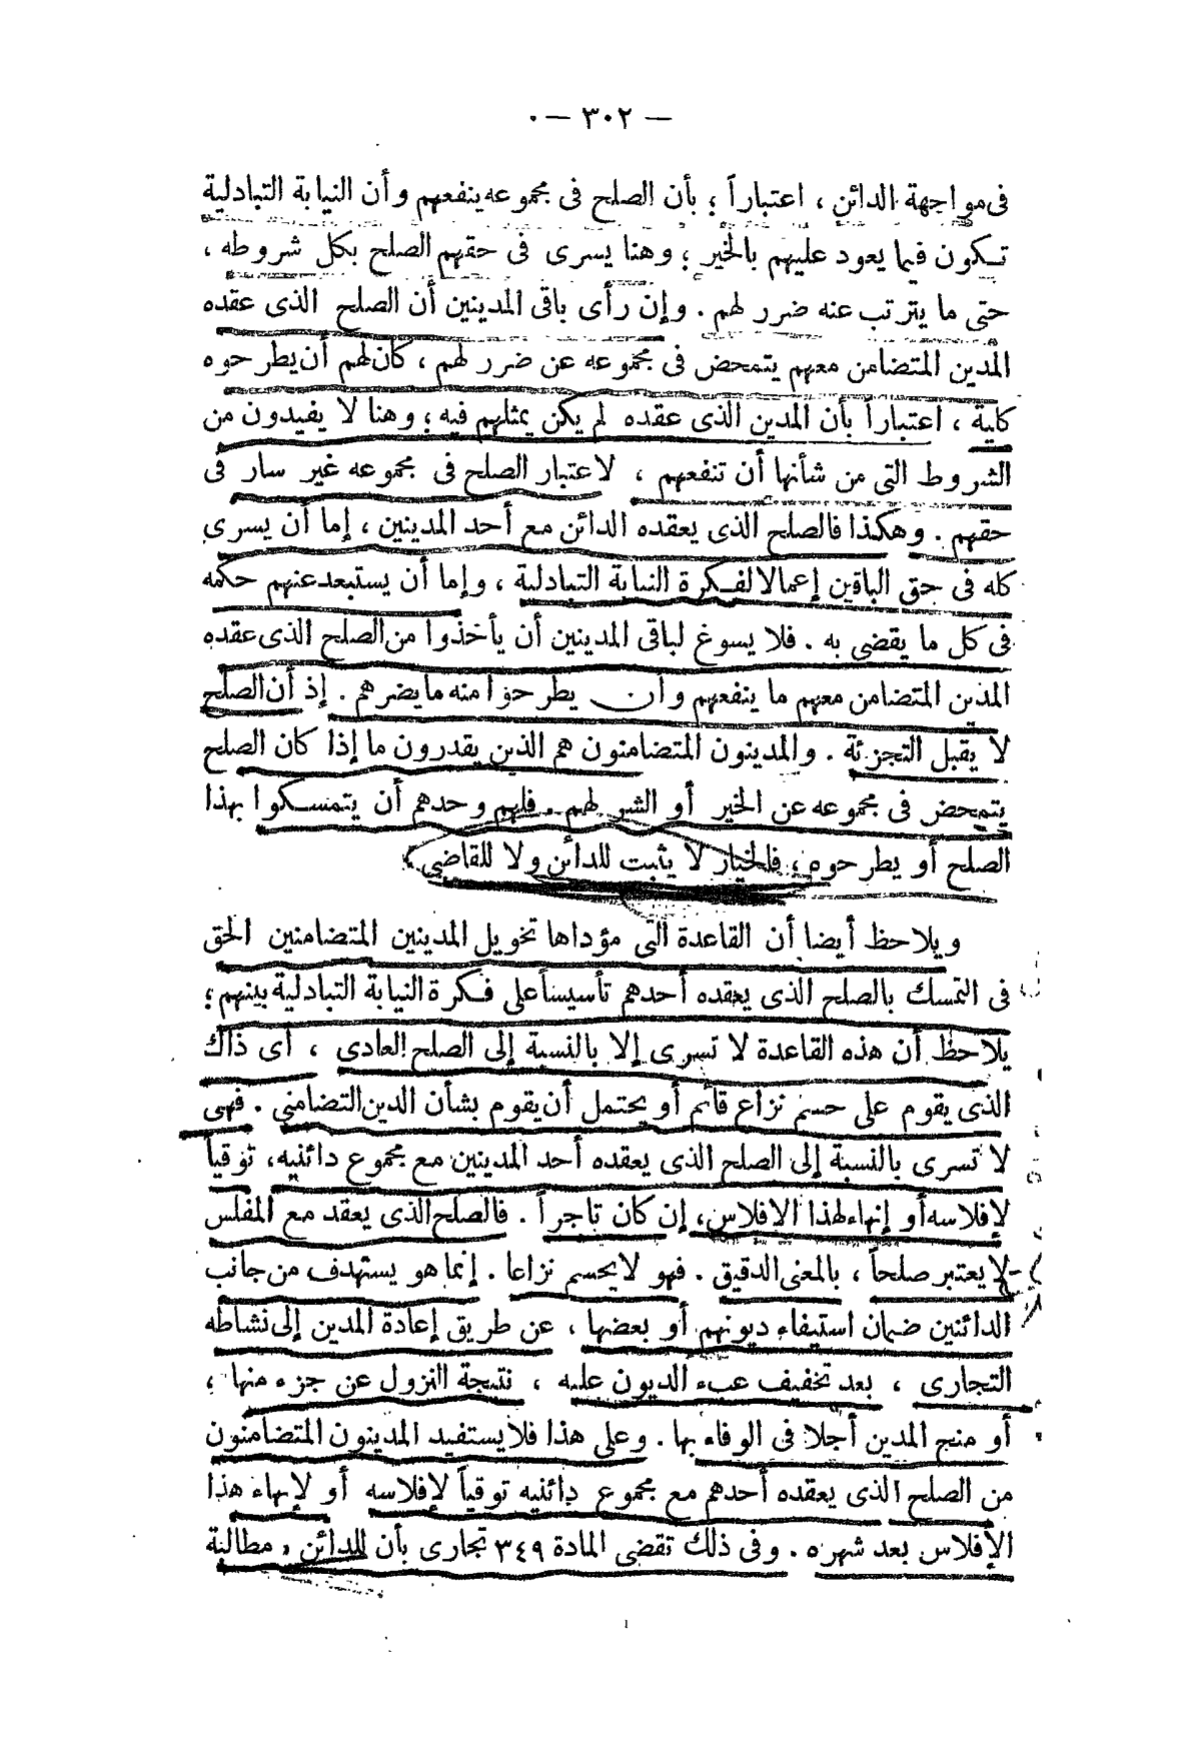 — ٣٠٢ —
فى مواجهة الدائن ، اعتباراً ؛ بأن الصلح فى مجموعه ينفعهم وأن النيابة التبادلية
تكون فيما يعود عليهم بالخير ؛ وهنا يسرى فى حقهم الصلح بكل شروطه ،
حتى ما يترتب عنه ضرر لهم . وإن رأى باقى المدينين أن الصلح الذى عقده
المدين المتضامن معهم يتمحض فى مجموعه عن ضرر لهم ، كان لهم أن يطرحوه
كلية ، اعتباراً بأن المدين الذى عقده لم يكن يمثلهم فيه ؛ وهنا لا يفيدون من
الشروط التى من شأنها أن تنفعهم ، لاعتبار الصلح فى مجموعه غير سار فى
حقهم . وهكذا فالصلح الذى يعقده الدائن مع أحد المدينين ، إما أن يسرى
كله فى حق الباقين إعمالا لفكرة النيابة التبادلية ، وإما أن يستبعد عنهم حكمه
فى كل ما يقضى به . فلا يسوغ لباقى المدينين أن يأخذوا من الصلح الذى عقده
المدين المتضامن معهم ما ينفعهم وأن يطرحوا منه ما يضرهم . إذ أن الصلح
لا يقبل التجزئة . والمدينون المتضامنون هم الذين يقدرون ما إذا كان الصلح
يتمحض فى مجموعه عن الخير أو الشر لهم . فلهم وحدهم أن يتمسكوا بهذا
الصلح أو يطرحوه ؛ فالخيار لا يثبت للدائن ولا للقاضى .
ويلاحظ أيضا أن القاعدة التى مؤداها تخويل المدينين المتضامنين الحق
فى التمسك بالصلح الذى يعقده أحدهم تأسيساً على فكرة النيابة التبادلية بينهم ؛
يلاحظ أن هذه القاعدة لا تسرى إلا بالنسبة إلى الصلح العادى ، أى ذاك
الذى يقوم على حسم نزاع قائم أو يحتمل أن يقوم بشأن الدين التضامنى . فهى
لا تسرى بالنسبة إلى الصلح الذى يعقده أحد المدينين مع مجموع دائنيه ، توقياً
لإفلاسه أو إنهاء لهذا الافلاس ، إن كان تاجراً . فالصلح الذى يعقد مع المفلس
لا يعتبر صلحاً ، بالمعنى الدقيق . فهو لا يحسم نزاعا . إنما هو يستهدف من جانب
الدائنين ضمان استيفاء ديونهم أو بعضها ، عن طريق إعادة المدين إلى نشاطه
التجارى ، بعد تخفيف عبء الديون عليه ، نتيجة النزول عن جزء منها ؛
أو منح المدين أجلا فى الوفاء بها . وعلى هذا فلا يستفيد المدينون المتضامنون
من الصلح الذى يعقده أحدهم مع مجموع دائنيه توقياً لإفلاسه أو لإنهاء هذا
الإفلاس بعد شهره . وفى ذلك تقضى المادة ٣٤٩ تجارى بأن للدائن ، مطالبة